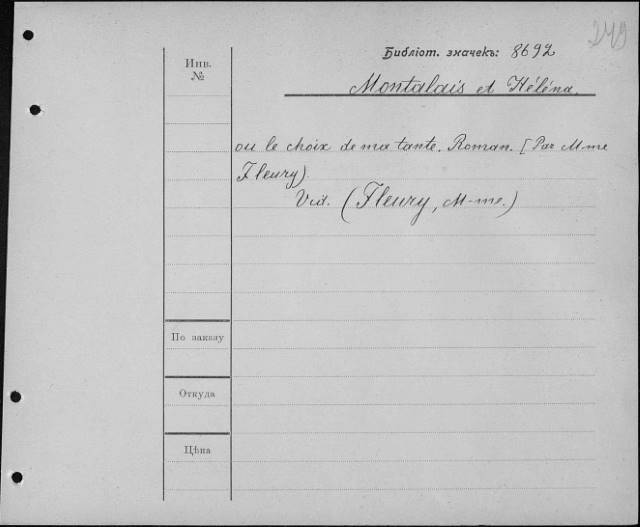 249
Библіот. значекъ: 8692
Инв.
№
Montalais et Héléna.
ou le choix de ma tante. Roman. [Par M-me
Fleury).
Vid. (Fleury, M-me.)
По заказу
Откуда
Цѣна